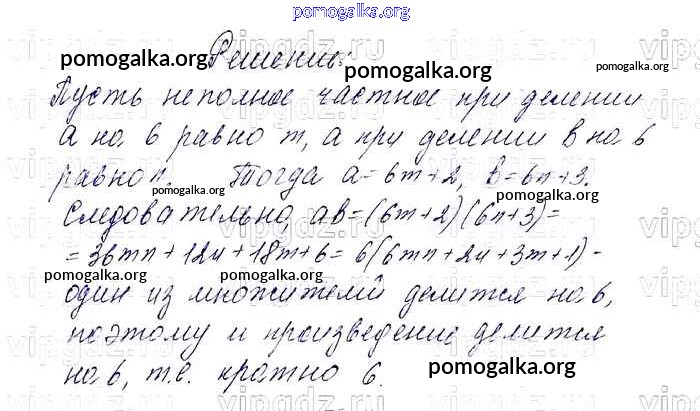 pomogalka.org
Решение:
Пусть неполное частное при делении
a на 6 равно m, а при делении b на 6
равно n. Тогда a=6m+2, b=6n+3.
Следовательно, ab=(6m+2)(6n+3)=
=36mn+12n+18m+6=6(6mn+2n+3m+1)-
один из множителей делится на 6,
поэтому и произведение делится
на 6, т.е. кратно 6.
pomogalka.org
pomogalka.org
pomogalka.org
pomogalka.org
pomogalka.org
pomogalka.org
pomogalka.org
pomogalka.org
pomogalka.org
vipgdz.ru